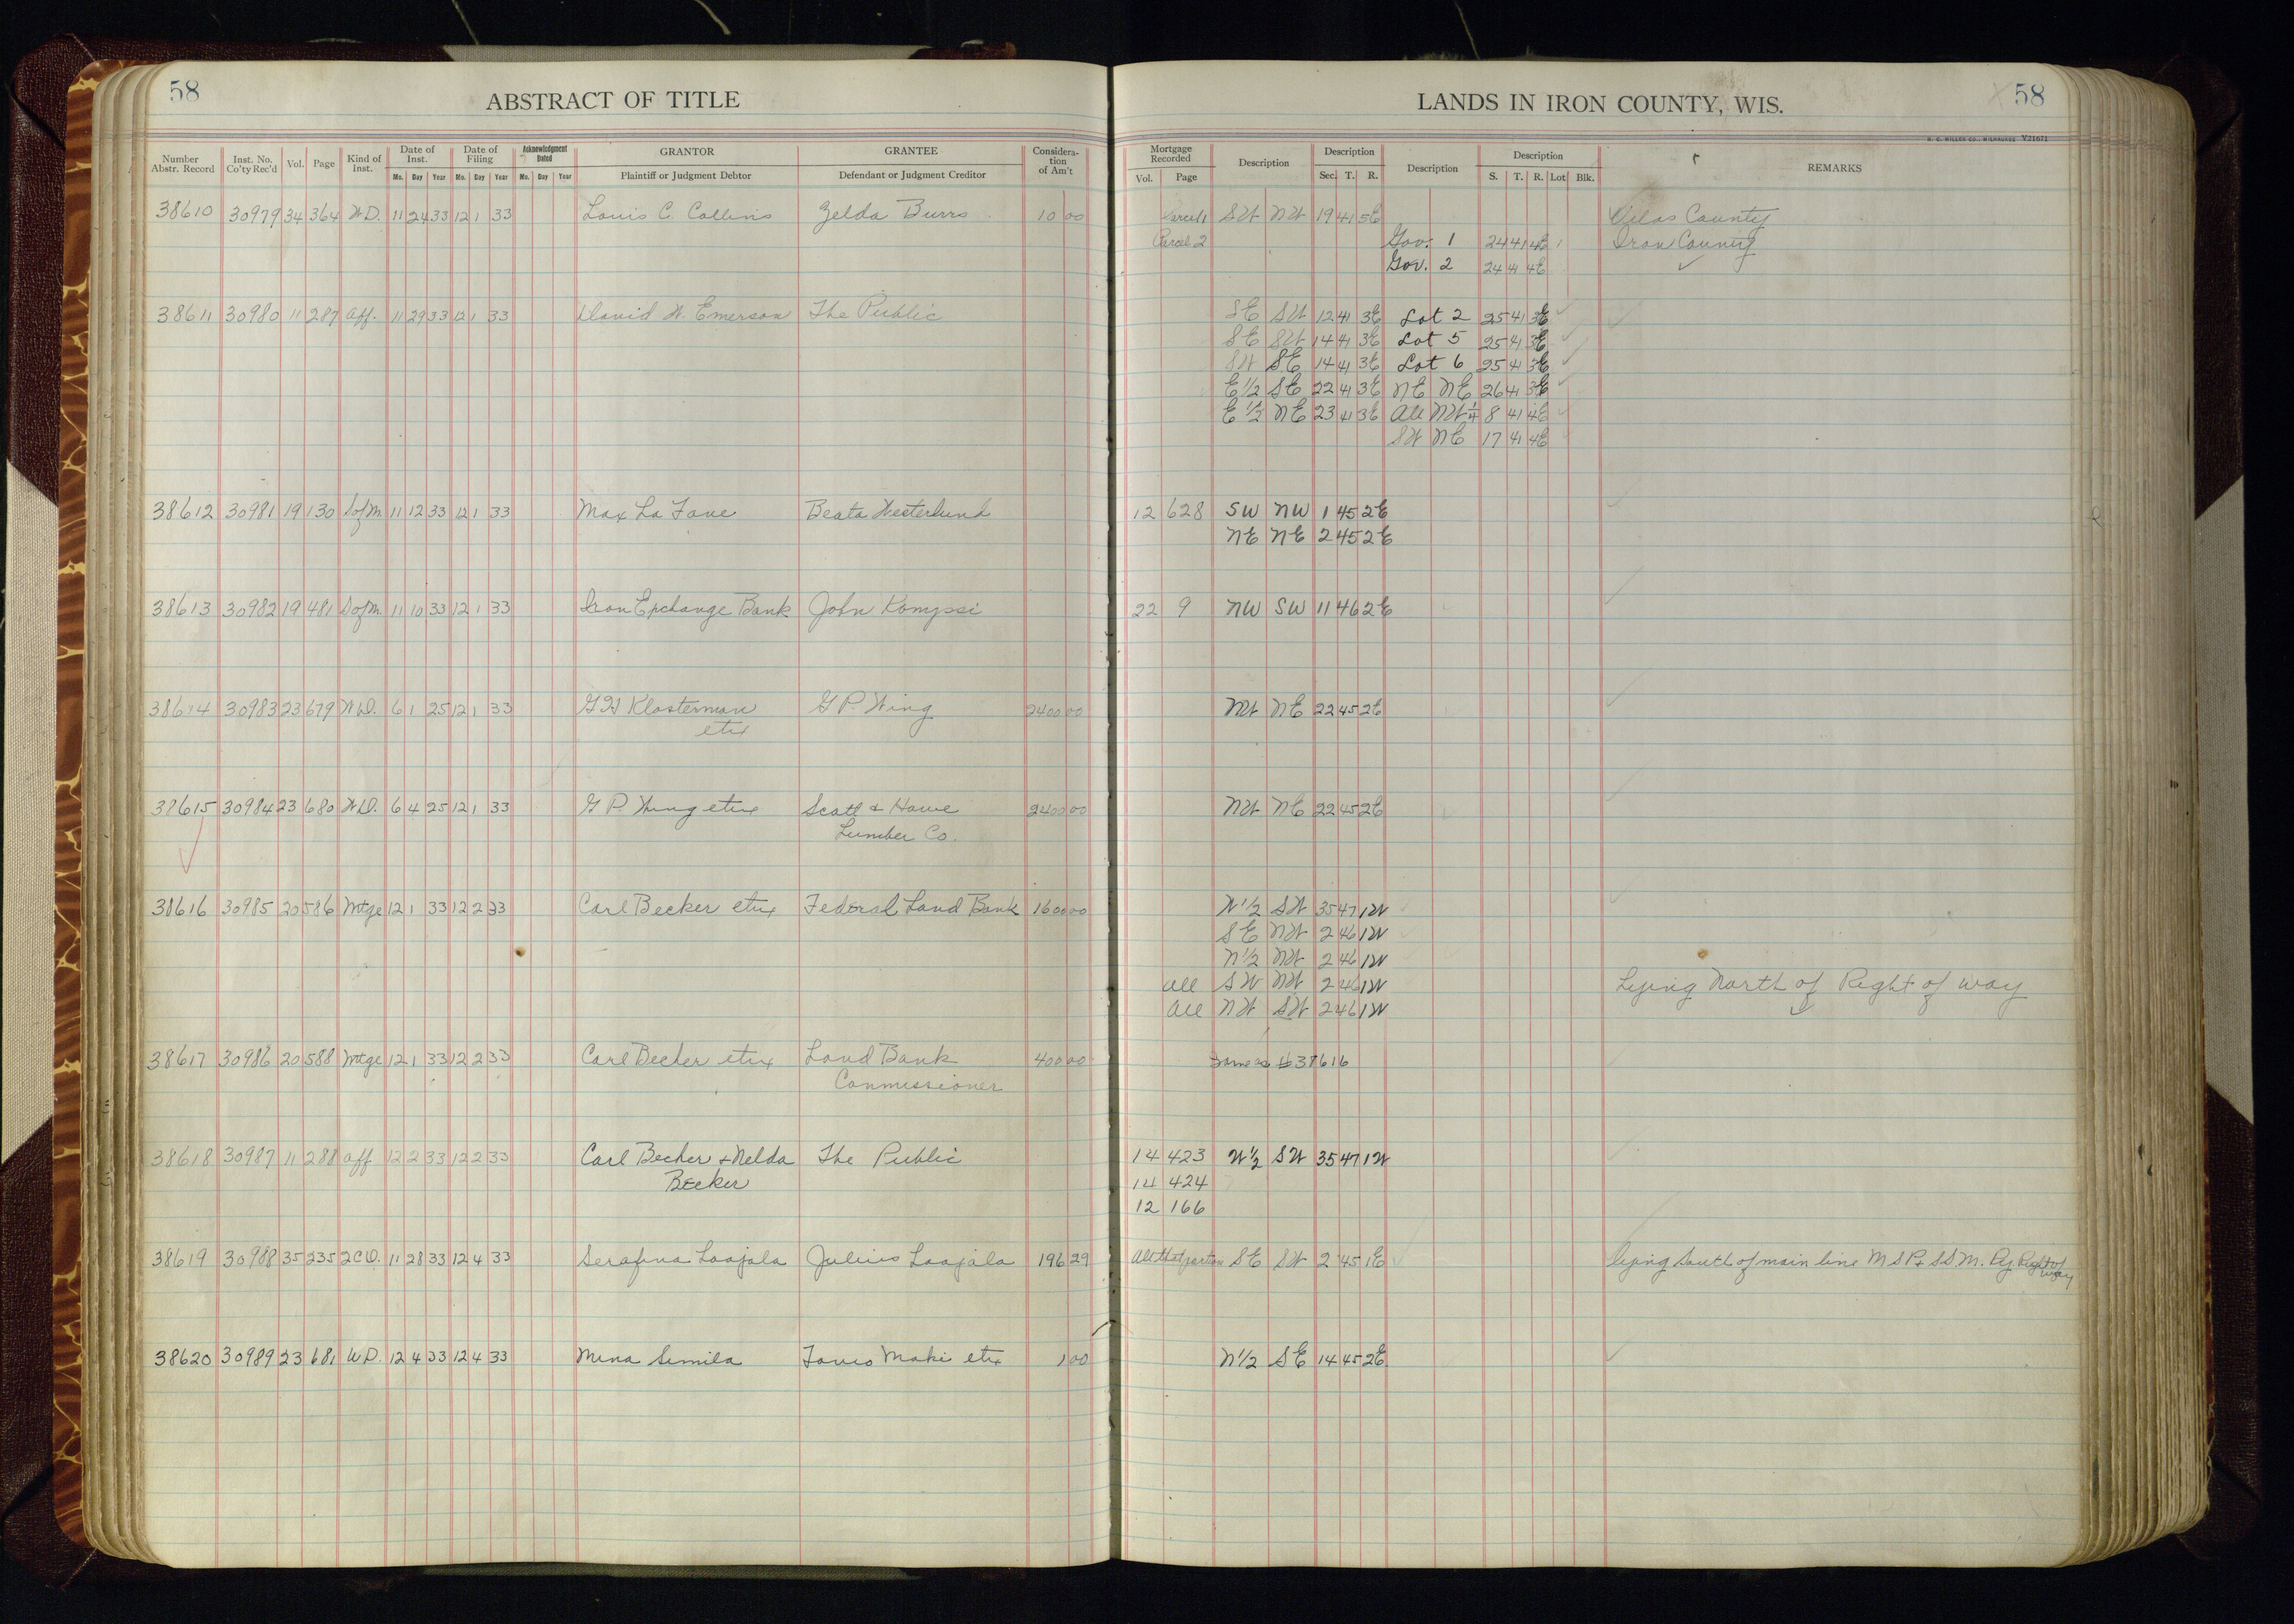 58
ABSTRACT OF TITLE
Number Abstr. Record Inst. No. Co'ty Rec'd Vol. Page Kind of Inst. Date of Inst. Date of Filing Acknowledgment Dated GRANTOR GRANTEE Consideration of Am't
Mo. Day Year Mo. Day Year Mo. Day Year Plaintiff or Judgment Debtor Defendant or Judgment Creditor
38610 30979 34 364 W.D. 11 24 33 12 1 33 Louis C. Collins Zelda Burrs 10 00
38611 30980 11 287 Aff. 11 29 33 12 1 33 David W. Emerson The Public
38612 30981 19 130 S of M. 11 12 33 12 1 33 Max La Fave Beata Westerlund
38613 30982 19 481 S of M. 11 10 33 12 1 33 Iron Exchange Bank John Kompsi
38614 30983 23 679 W.D. 6 1 25 12 1 33 G H Klosterman G P. Wing 2400 00
etux
38615 30984 23 680 W.D. 6 4 25 12 1 33 G P. Wing etux Scott & Howe 2400 00
Lumber Co.
38616 30985 20 586 Mtge 12 1 33 12 2 33 Carl Becker etux Federal Land Bank 1600 00
38617 30986 20 588 Mtge 12 1 33 12 2 33 Carl Becker etux Land Bank 400 00
Commissioner
38618 30987 11 288 Aff 12 2 33 12 2 33 Carl Becker & Nelda The Public
Becker
38619 30988 35 235 2CD. 11 28 33 12 4 33 Serafina Laajala Julius Laajala 196 29
38620 30989 23 681 W.D. 12 4 33 12 4 33 Mina Simila Tavio Maki etux 1 00
LANDS IN IRON COUNTY, WIS.
58
H. C. MILLER CO., MILWAUKEE V21671
Mortgage Recorded Description Description Description Description REMARKS
Vol. Page Sec. T. R. S. T. R. Lot Blk.
Parcel 1 SW NW 19 41 5E Vilas County
Parcel 2 Gov. 1 24 41 4E Iron County
Gov. 2 24 41 4E
SE SW 12 41 3E Lot 2 25 41 3E
SE SW 14 41 3E Lot 5 25 41 3E
SW SE 14 41 3E Lot 6 25 41 3E
E 1/2 SE 22 41 3E NE NE 26 41 3E
E 1/2 NE 23 41 3E All NW 1/4 8 41 4E
SW NE 17 41 4E
12 628 SW NW 1 45 2E
NE NE 2 45 2E
22 9 NW SW 11 46 2E
NW NE 22 45 2E
NW NE 22 45 2E
W 1/2 SW 35 47 1W
SE NW 2 46 1W
N 1/2 NW 2 46 1W
All SW NW 2 46 1W Lying North of Right of way
All NW SW 2 46 1W
Same as #38616
14 423 W 1/2 SW 35 47 1W
14 424
12 166
All that portion SE SW 2 45 1E lying South of main line M S P & S S M. Ry. Right of way
N 1/2 SE 14 45 2E